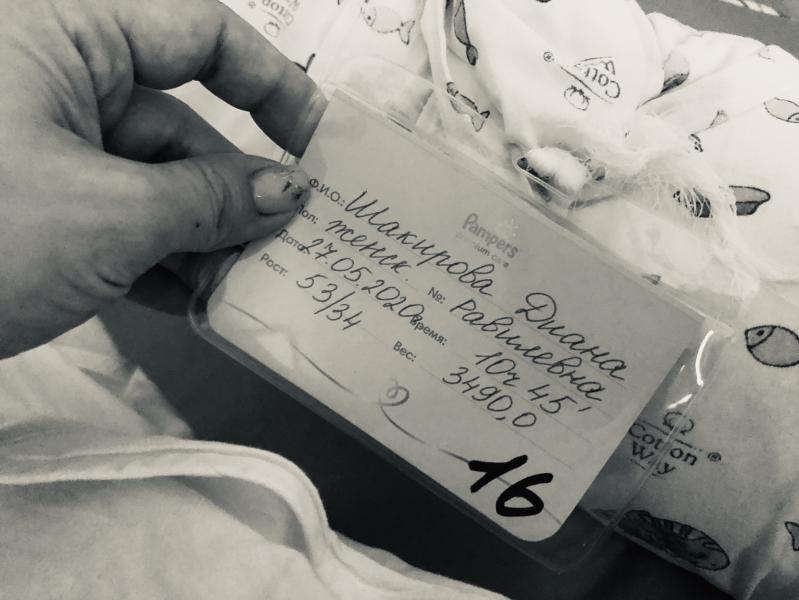 Pampers
premium care
Ф.И.О.: Шакирова Диана
Равилевна
Пол: женск. №:
Дата: 27.05.2020 Время: 10ч 45'
Рост: 53/34 Вес: 3490,0
16
Cotton
Way ®